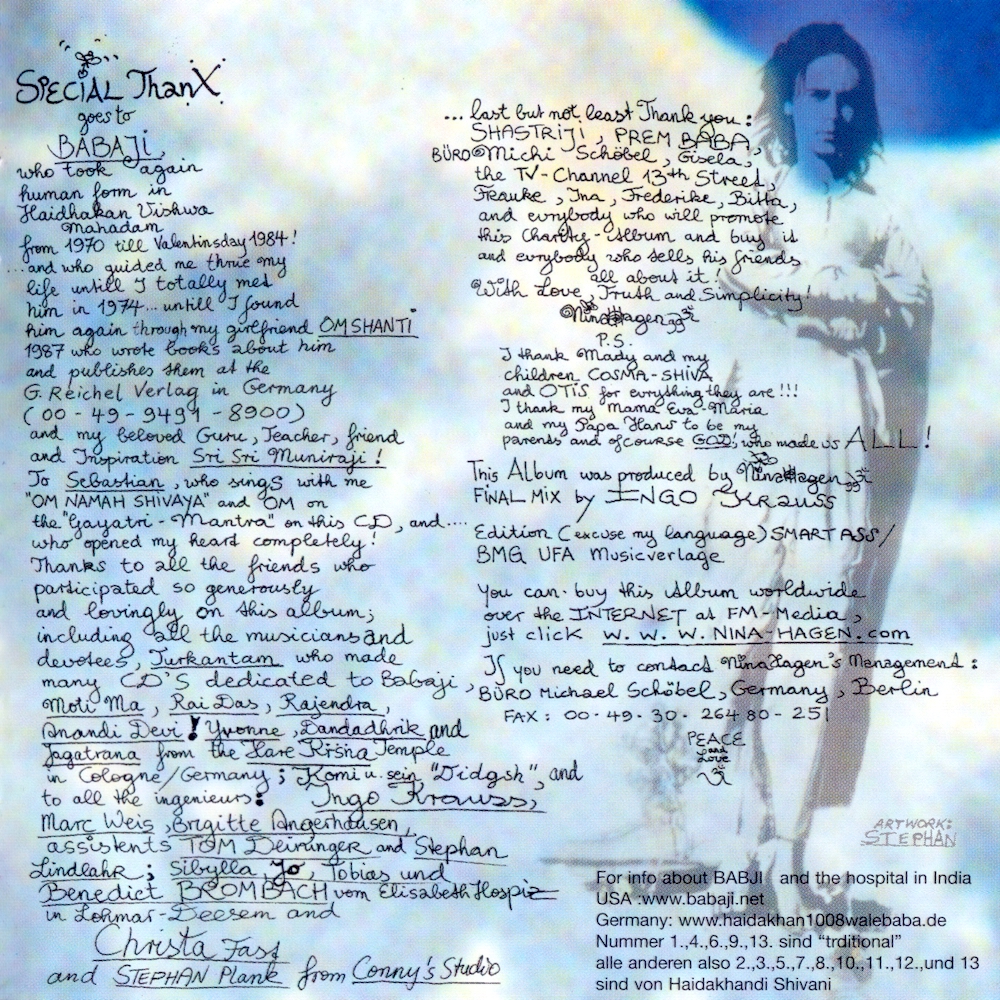 SPECIAL ThanX
goes to
BABAJI,
who took again
human form in
Haidhakan Vishwa
Mahadam
from 1970 till Valentinsday 1984!
...and who guided me thrue my
life untill I totally met
him in 1974... untill I found
him again through my girlfriend OM SHANTI
1987 who wrote books about him
and publishes them at the
G. Reichel Verlag in Germany
(00-49-9491-8900)
and my beloved Guru, Teacher, friend
and Inspiration Sri Sri Muniraji!
To Sebastian, who sings with me
"OM NAMAH SHIVAYA" and OM on
the "Gayatri-Mantra" on this CD, and....
who opened my heart completely!
Thanks to all the friends who
participated so generously
and lovingly on this album;
including all the musicians and
devotees, Turkantam who made
many CD'S dedicated to Babaji,
Moti Ma, Rai Das, Rajendra,
Anandi Devi! Yvonne, Dandadhrik and
Jagatrana from the Hare Kršna Temple
in Cologne/Germany; Komi u. sein "Didgsh", and
to all the ingenieurs: Ingo Krauss,
Marc Weis, Brigitte Angerhausen,
assistents TOM Deininger and Stephan
Lindlahr; Sibylla, Jo, Tobias und
Benedict BROMBACH vom Elisabeth Hospiz
in Lohmar-Deesem and
Christa Fast
and STEPHAN Plank from Conny's Studio
... last but not least Thank you:
SHASTRIJI, PREM BABA,
BÜRO Michi Schöbel, Gisela,
the TV-Channel 13th Street,
Frauke, Ina, Frederike, Bitta,
and evrybody who will promote
this Charity-Album and buy it
and evrybody who tells his friends
all about it!
With Love, Truth and Simplicity!
Nina Hagen ॐ
P.S.
I thank Mady and my
children COSMA-SHIVA
and OTIS for evrything they are!!!
I thank my Mama Eva-Maria
and my Papa Hans to be my
parents and ofcourse GOD, who made us ALL!
This Album was produced by Nina Hagen ॐ
FINAL MIX by INGO Krauss
Edition (excuse my language) SMART ASS/
BMG UFA Musicverlage
You can buy this Album worldwide
over the INTERNET at FM-Media,
just click W.W.W.NINA-HAGEN.com
If you need to contact Nina Hagen's Management:
BÜRO Michael Schöbel, Germany, Berlin
FAX: 00-49-30-264 80-251
PEACE
and
Love
ॐ
ARTWORK:
STEPHAN
For info about BABJI and the hospital in India
USA :www.babaji.net
Germany: www.haidakhan1008walebaba.de
Nummer 1.,4.,6.,9.,13. sind "trditional"
alle anderen also 2.,3.,5.,7.,8.,10.,11.,12.,und 13
sind von Haidakhandi Shivani